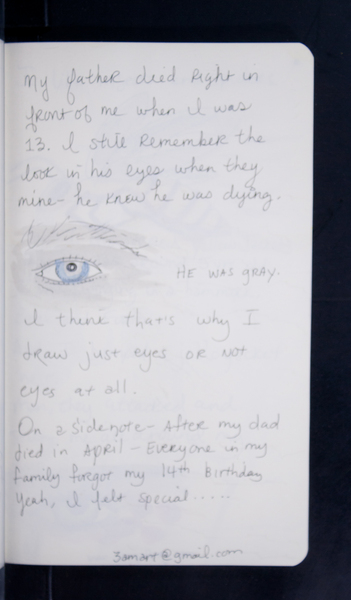 My father died right in
front of me when I was
13. I still remember the
look in his eyes when they
mine- he know he was dying.
HE WAS GRAY.
I think that's why I
draw just eyes or not
eyes at all.
On a sidenote- After my dad
died in April - Everyone in my
family forgot my 14th Birthday
Yeah, I felt special.....
3amart@gmail.com